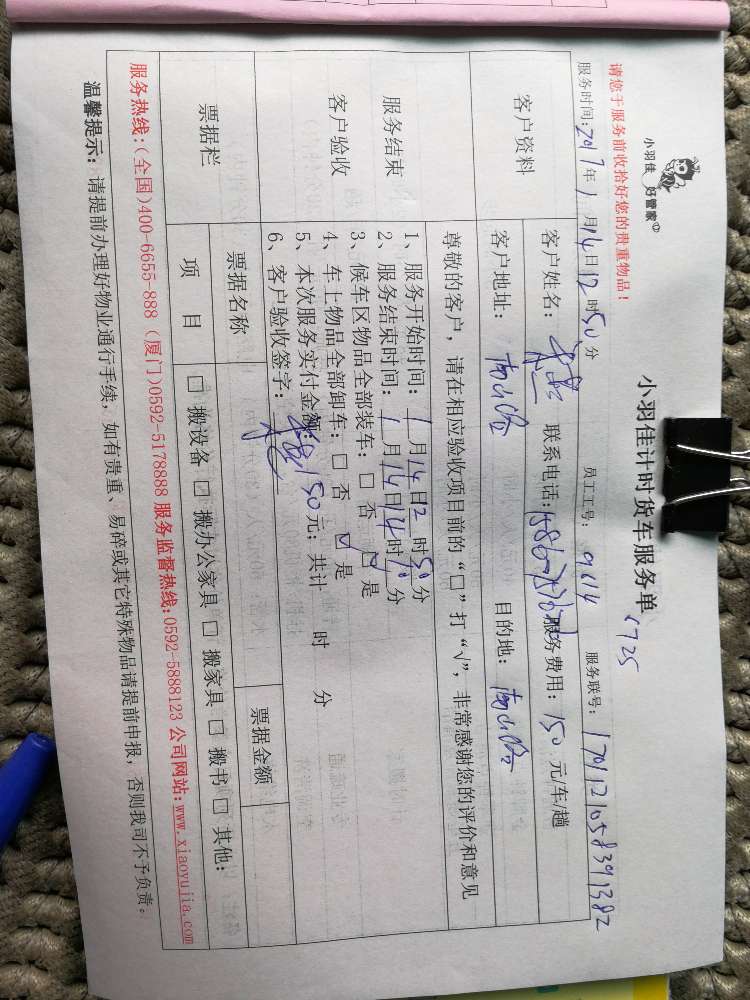 小羽佳 好管家
小羽佳计时货车服务单
1725
请您于服务前收拾好您的贵重物品！
服务时间：2017年1月14日12时50分 员工工号：9614 服务联号：
客户资料
客户姓名： 联系电话： 服务费用：150元/车/趟
客户地址： 目的地：
服务结束
客户验收
尊敬的客户，请在相应验收项目前的“□”打“√”，非常感谢您的评价和意见
1、服务开始时间：1月14日12时50分
2、服务结束时间：1月14日14时10分
3、候车区物品全部装车：□ 否 ☑ 是
4、车上物品全部卸车：□ 否 ☑ 是
5、本次服务实付金额：150元；共计 时 分
6、客户验收签字：
票据栏
票据名称 票据金额
项 目 □ 搬设备 □ 搬办公家具 □ 搬家具 □ 搬书 □ 其他：
服务热线：(全国)400-6655-888 (厦门)0592-5178888 服务监督热线：0592-5888123 公司网站：www.xiaoyujia.com
温馨提示：请提前办理好物业通行手续，如有贵重、易碎或其它特殊物品请提前申报，否则我司不予负责。